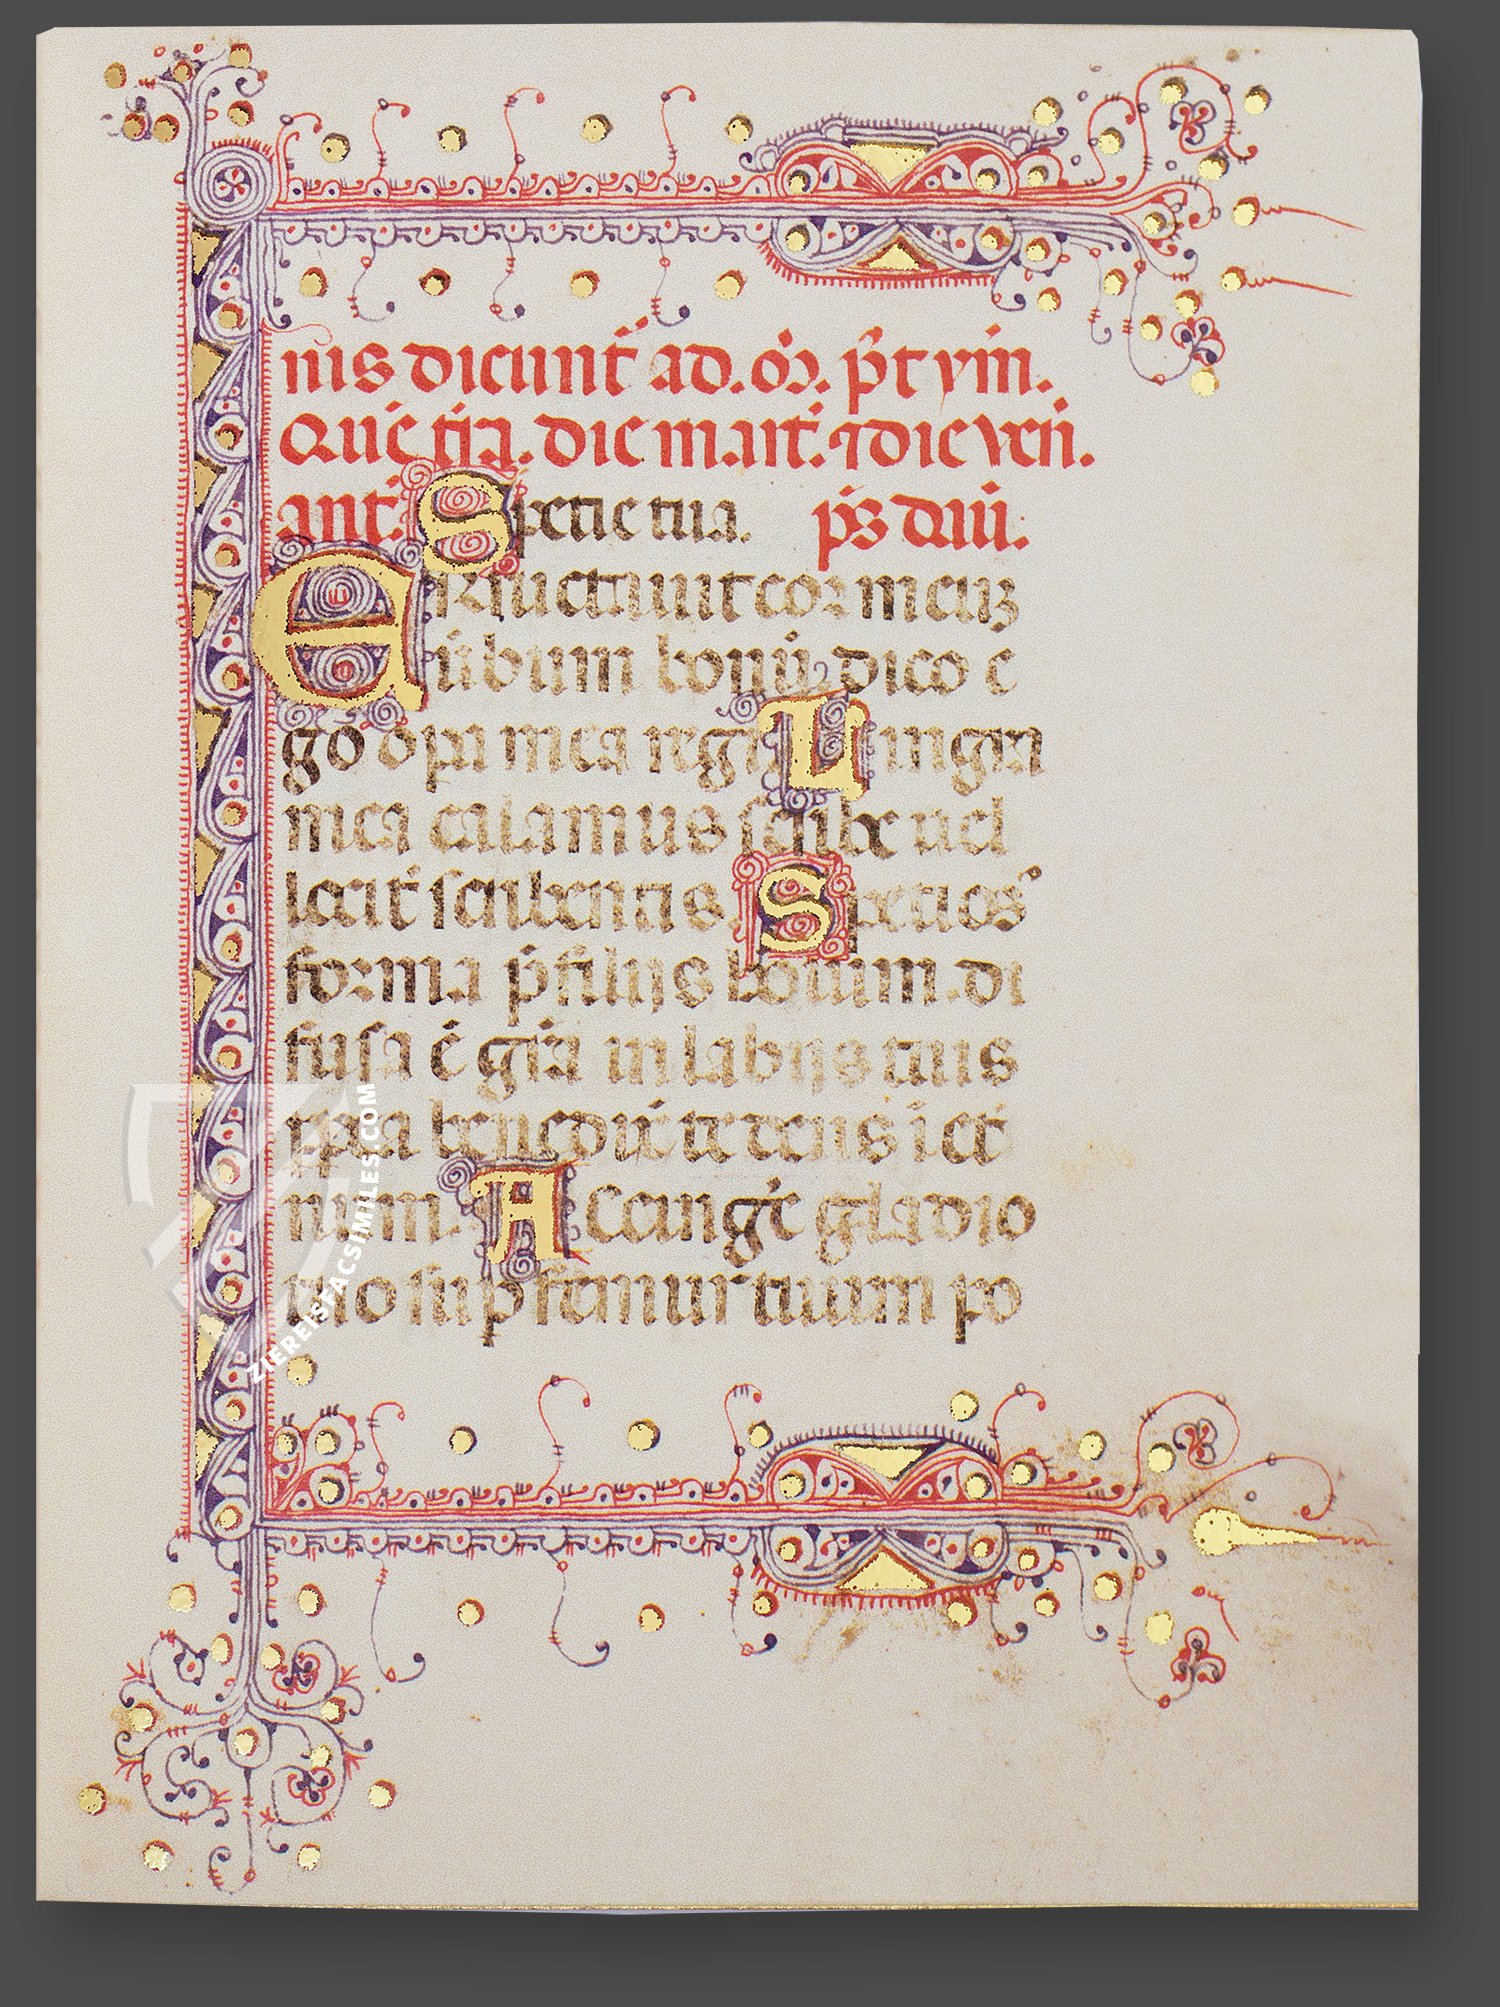 nis dicunt̄ ad. or̄. p̄t ym̄.
Que t̄ia. die mart̄. ⁊ die ven̄.
ant̄. Spetie tua. p̄s dauī.
Eructauit cor meuꝫ
u̅bum bonū dico e
go opa mea regi Lingua
mea calamus scribe uel
locit̄ scribentis Spetiosꝰ
forma p̄ filijs bouum .di
fusa ē gr̄a in labijs tuis
ꝓpa benedix̄ te deus ī et̄
num. Accingẽ gladio
tuo sup̄ femur tuum po
ZIEREISFACSIMILES.COM